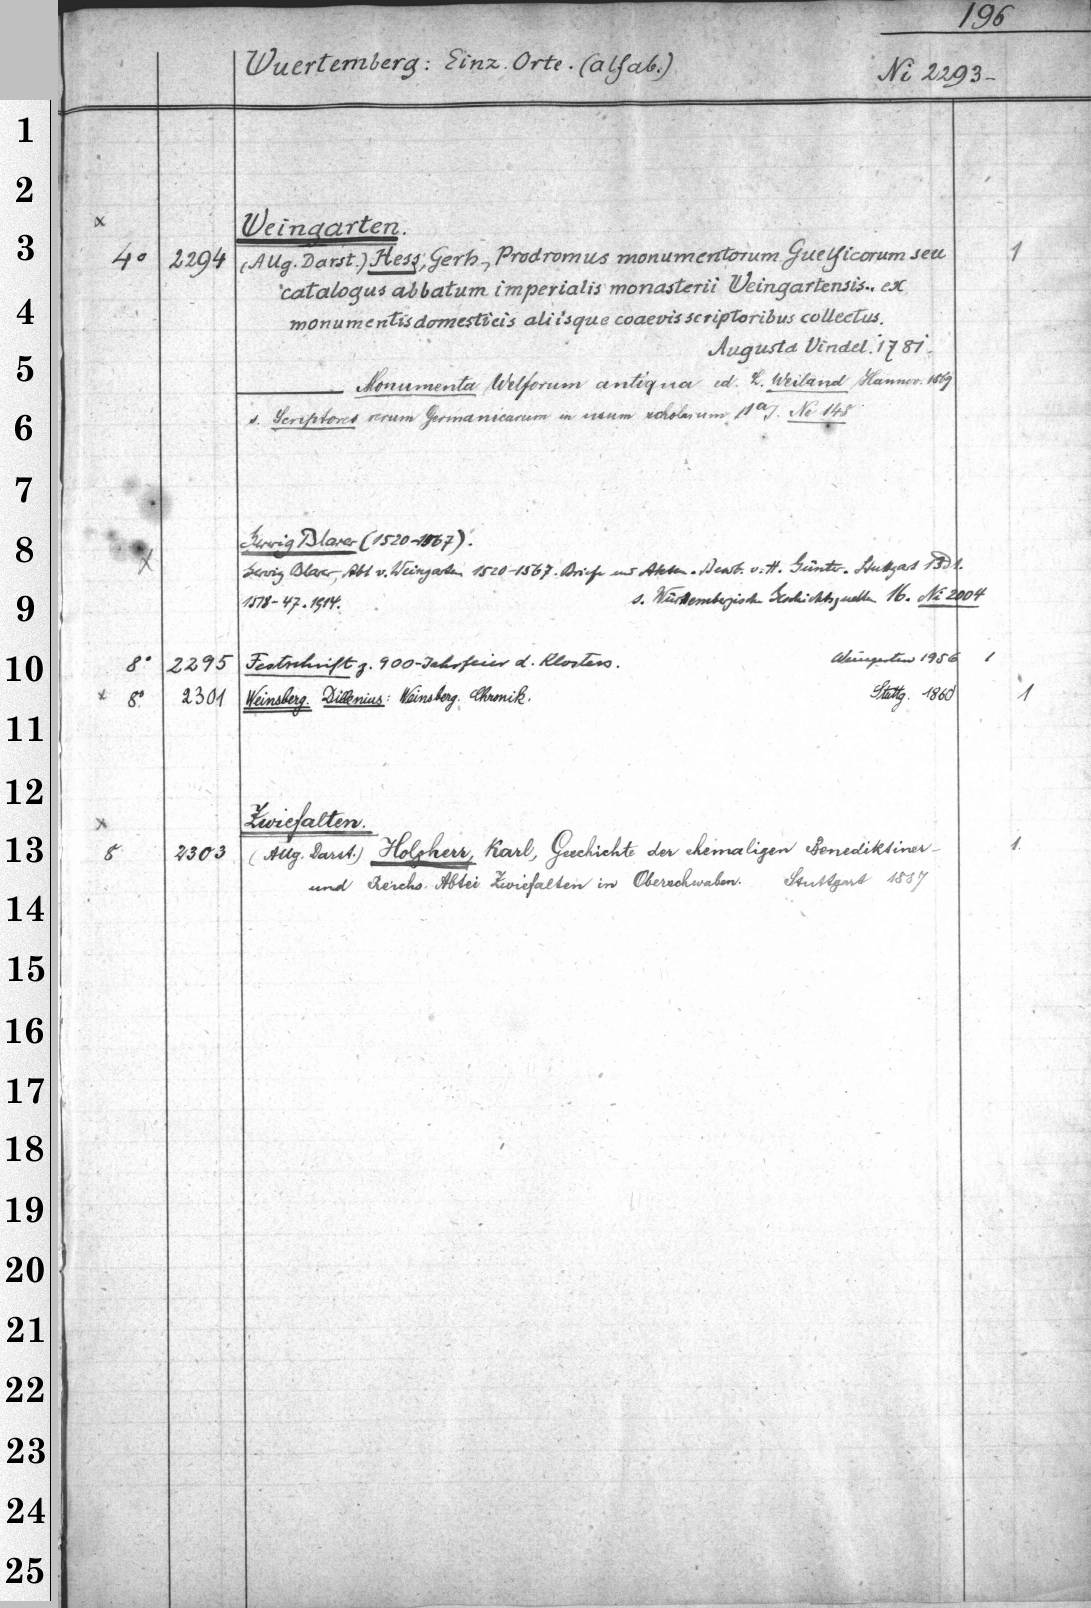 196
Wuertemberg: Einz. Orte. (alfab.) Ni 2293-
1
2
x Weingarten.
3 4° 2294 (Allg. Darst.) Hess, Gerh., Prodromus monumentorum Guelficorum seu 1
catalogus abbatum imperialis monasterii Weingartensis.. ex
4 monumentis domesticis aliisque coaevis scriptoribus collectus.
Augusta Vindel. 1781.
5 Monumenta Welforum antiqua ed. L. Weiland Hannov. 1869
6 s. Scriptores rerum Germanicarum in usum scholarum Ni 148
7
8 Gerwig Blarer (1520-1567).
x Gerwig Blarer, Abt v. Weingarten 1520-1567. Briefe und Akten. Bearb. v. H. Günter. Stuttgart Bd 1.
9 1518-47. 1914. s. Württembergische Geschichtsquellen 16. Ni 2004
10 8° 2295 Festschrift z. 900-Jahrfeier d. Klosters. Weingarten 1956 1
x 8° 2301 Weinsberg. Dillenius: Weinsberg. Chronik. Stuttg. 1860 1
11
12
x Zwiefalten.
13 8 2303 (Allg. Darst.) Holzherr, Karl, Geschichte der ehemaligen Benediktiner- 1.
und Reichs. Abtei Zwiefalten in Oberschwaben. Stuttgart 1887
14
15
16
17
18
19
20
21
22
23
24
25